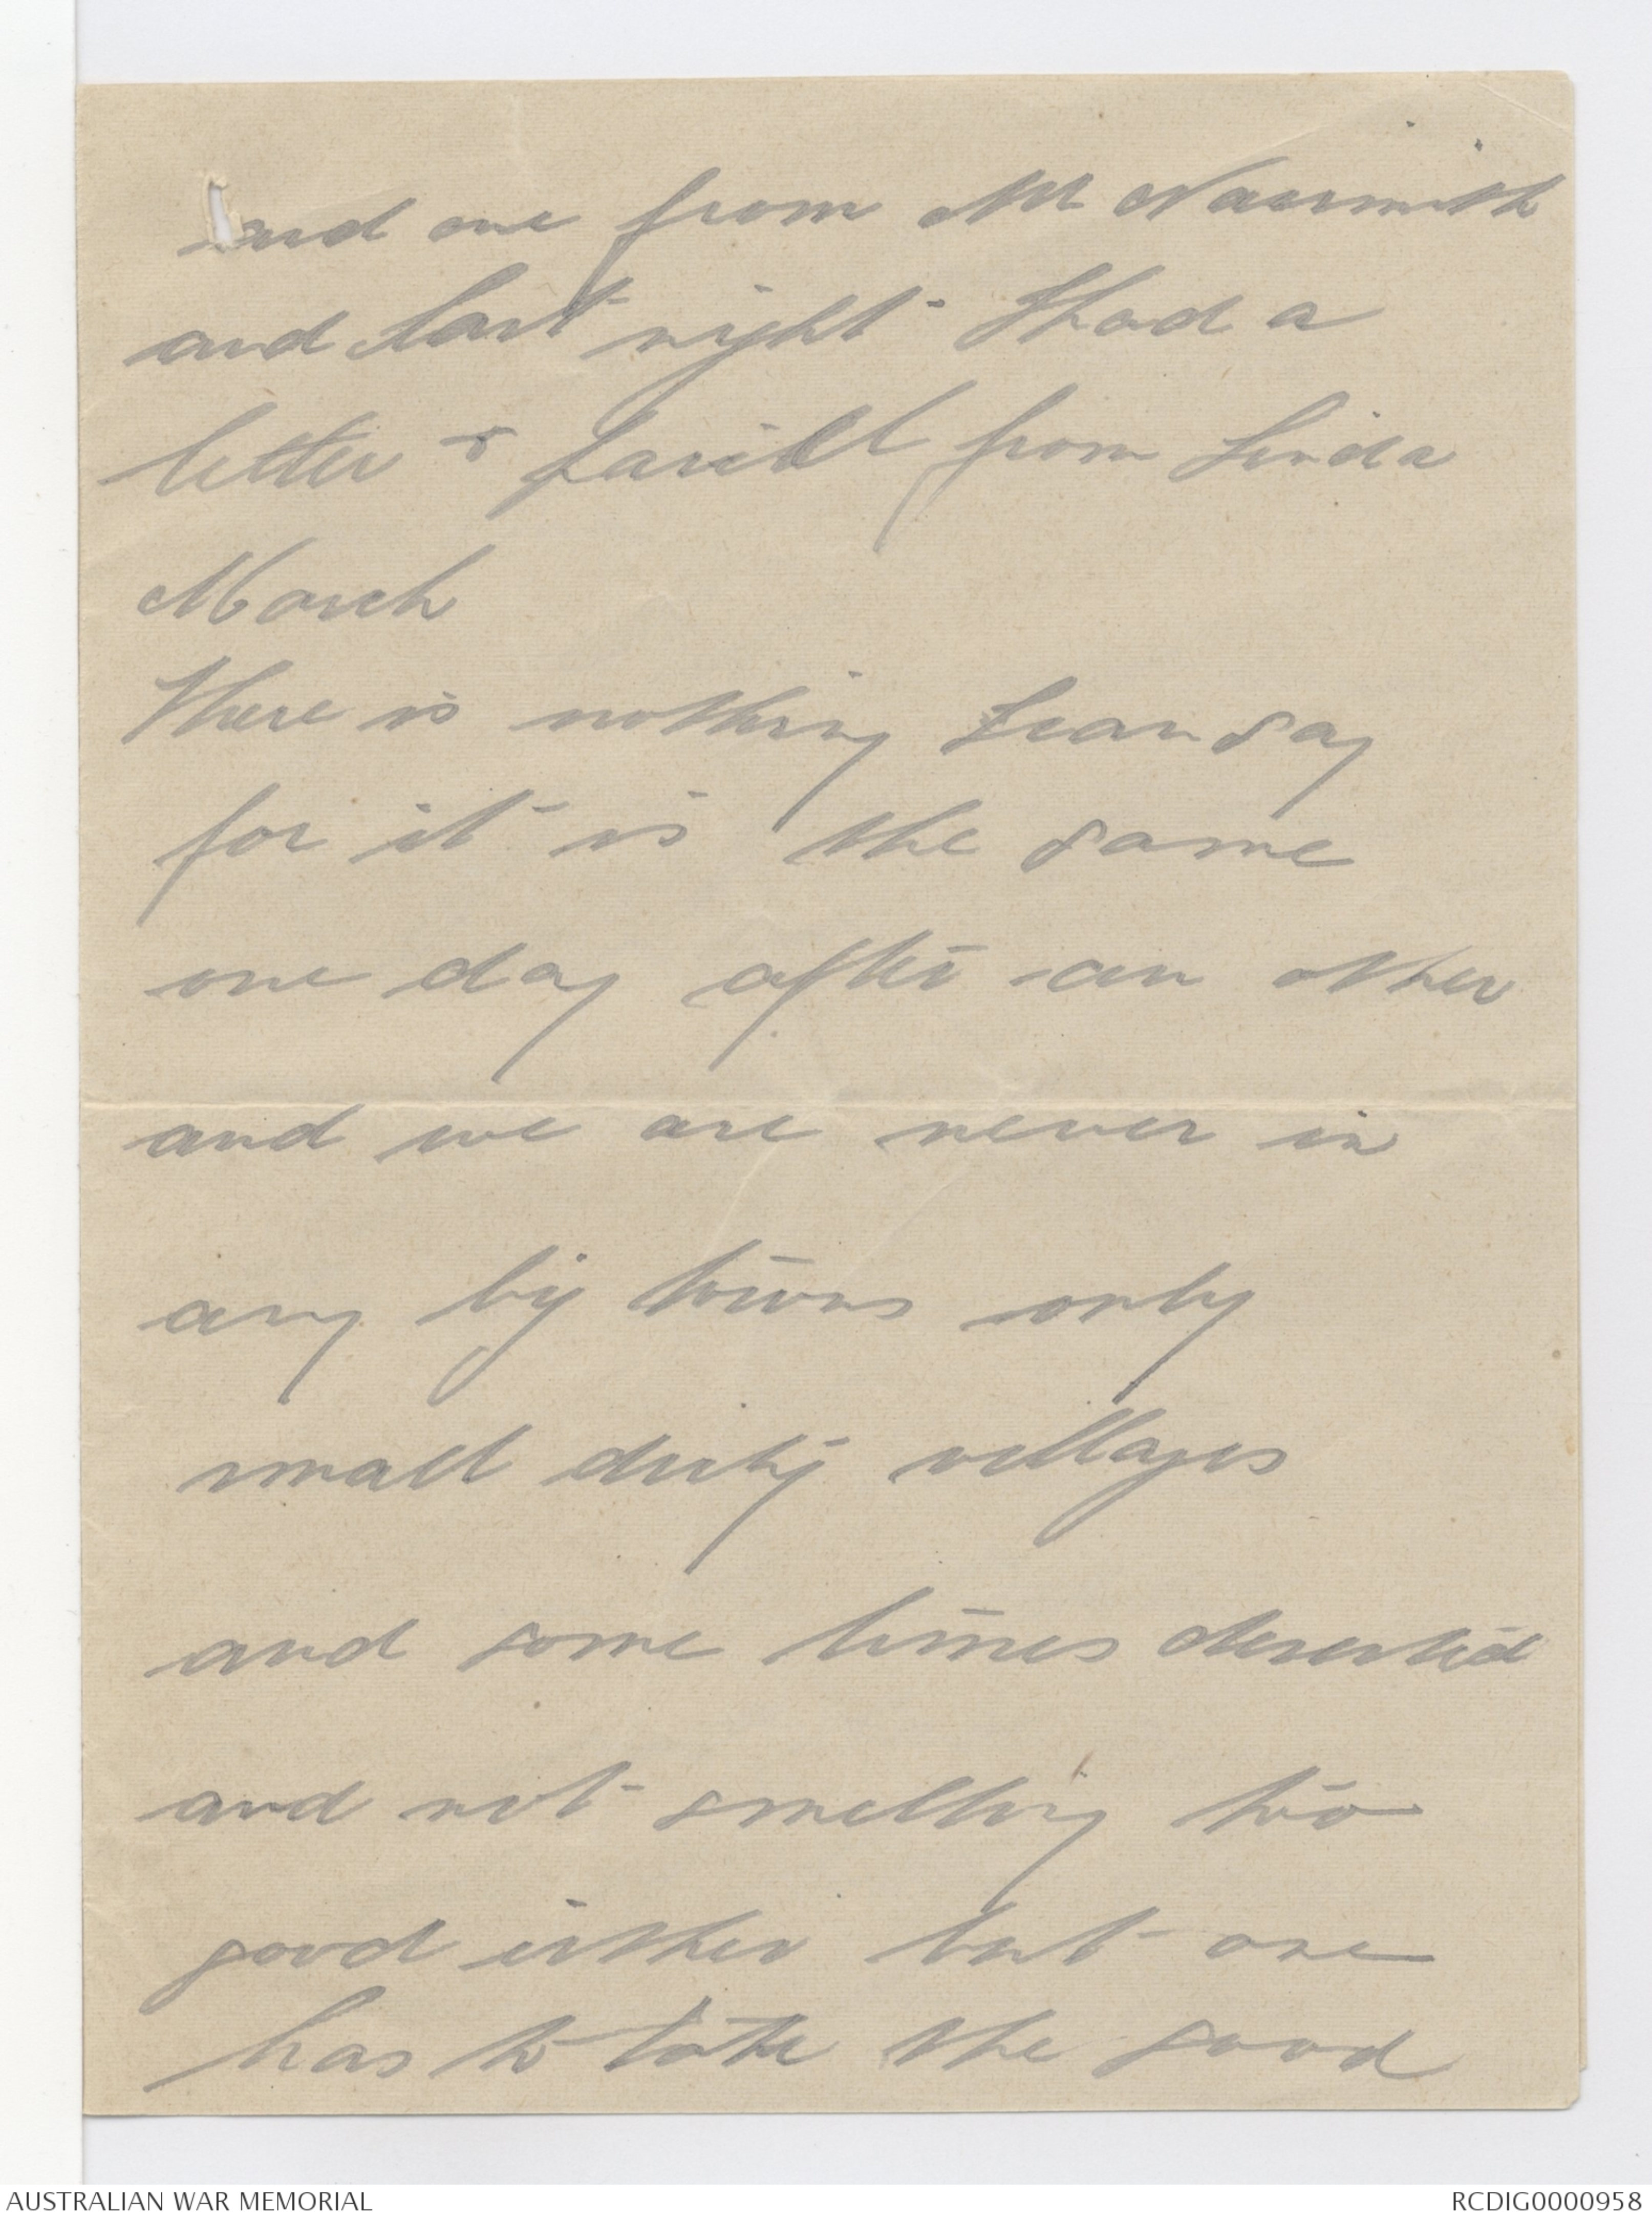 and one from Mr Naismith
and last night I had a
letter & parcel from Linda
March
There is nothing I can say
for it is the same
one day after an other
and we are never in
any big towns only
small dirty villages
and some times deserted
and not smelling too
good either but one
has to take the good
AUSTRALIAN WAR MEMORIAL
RCDIG0000958